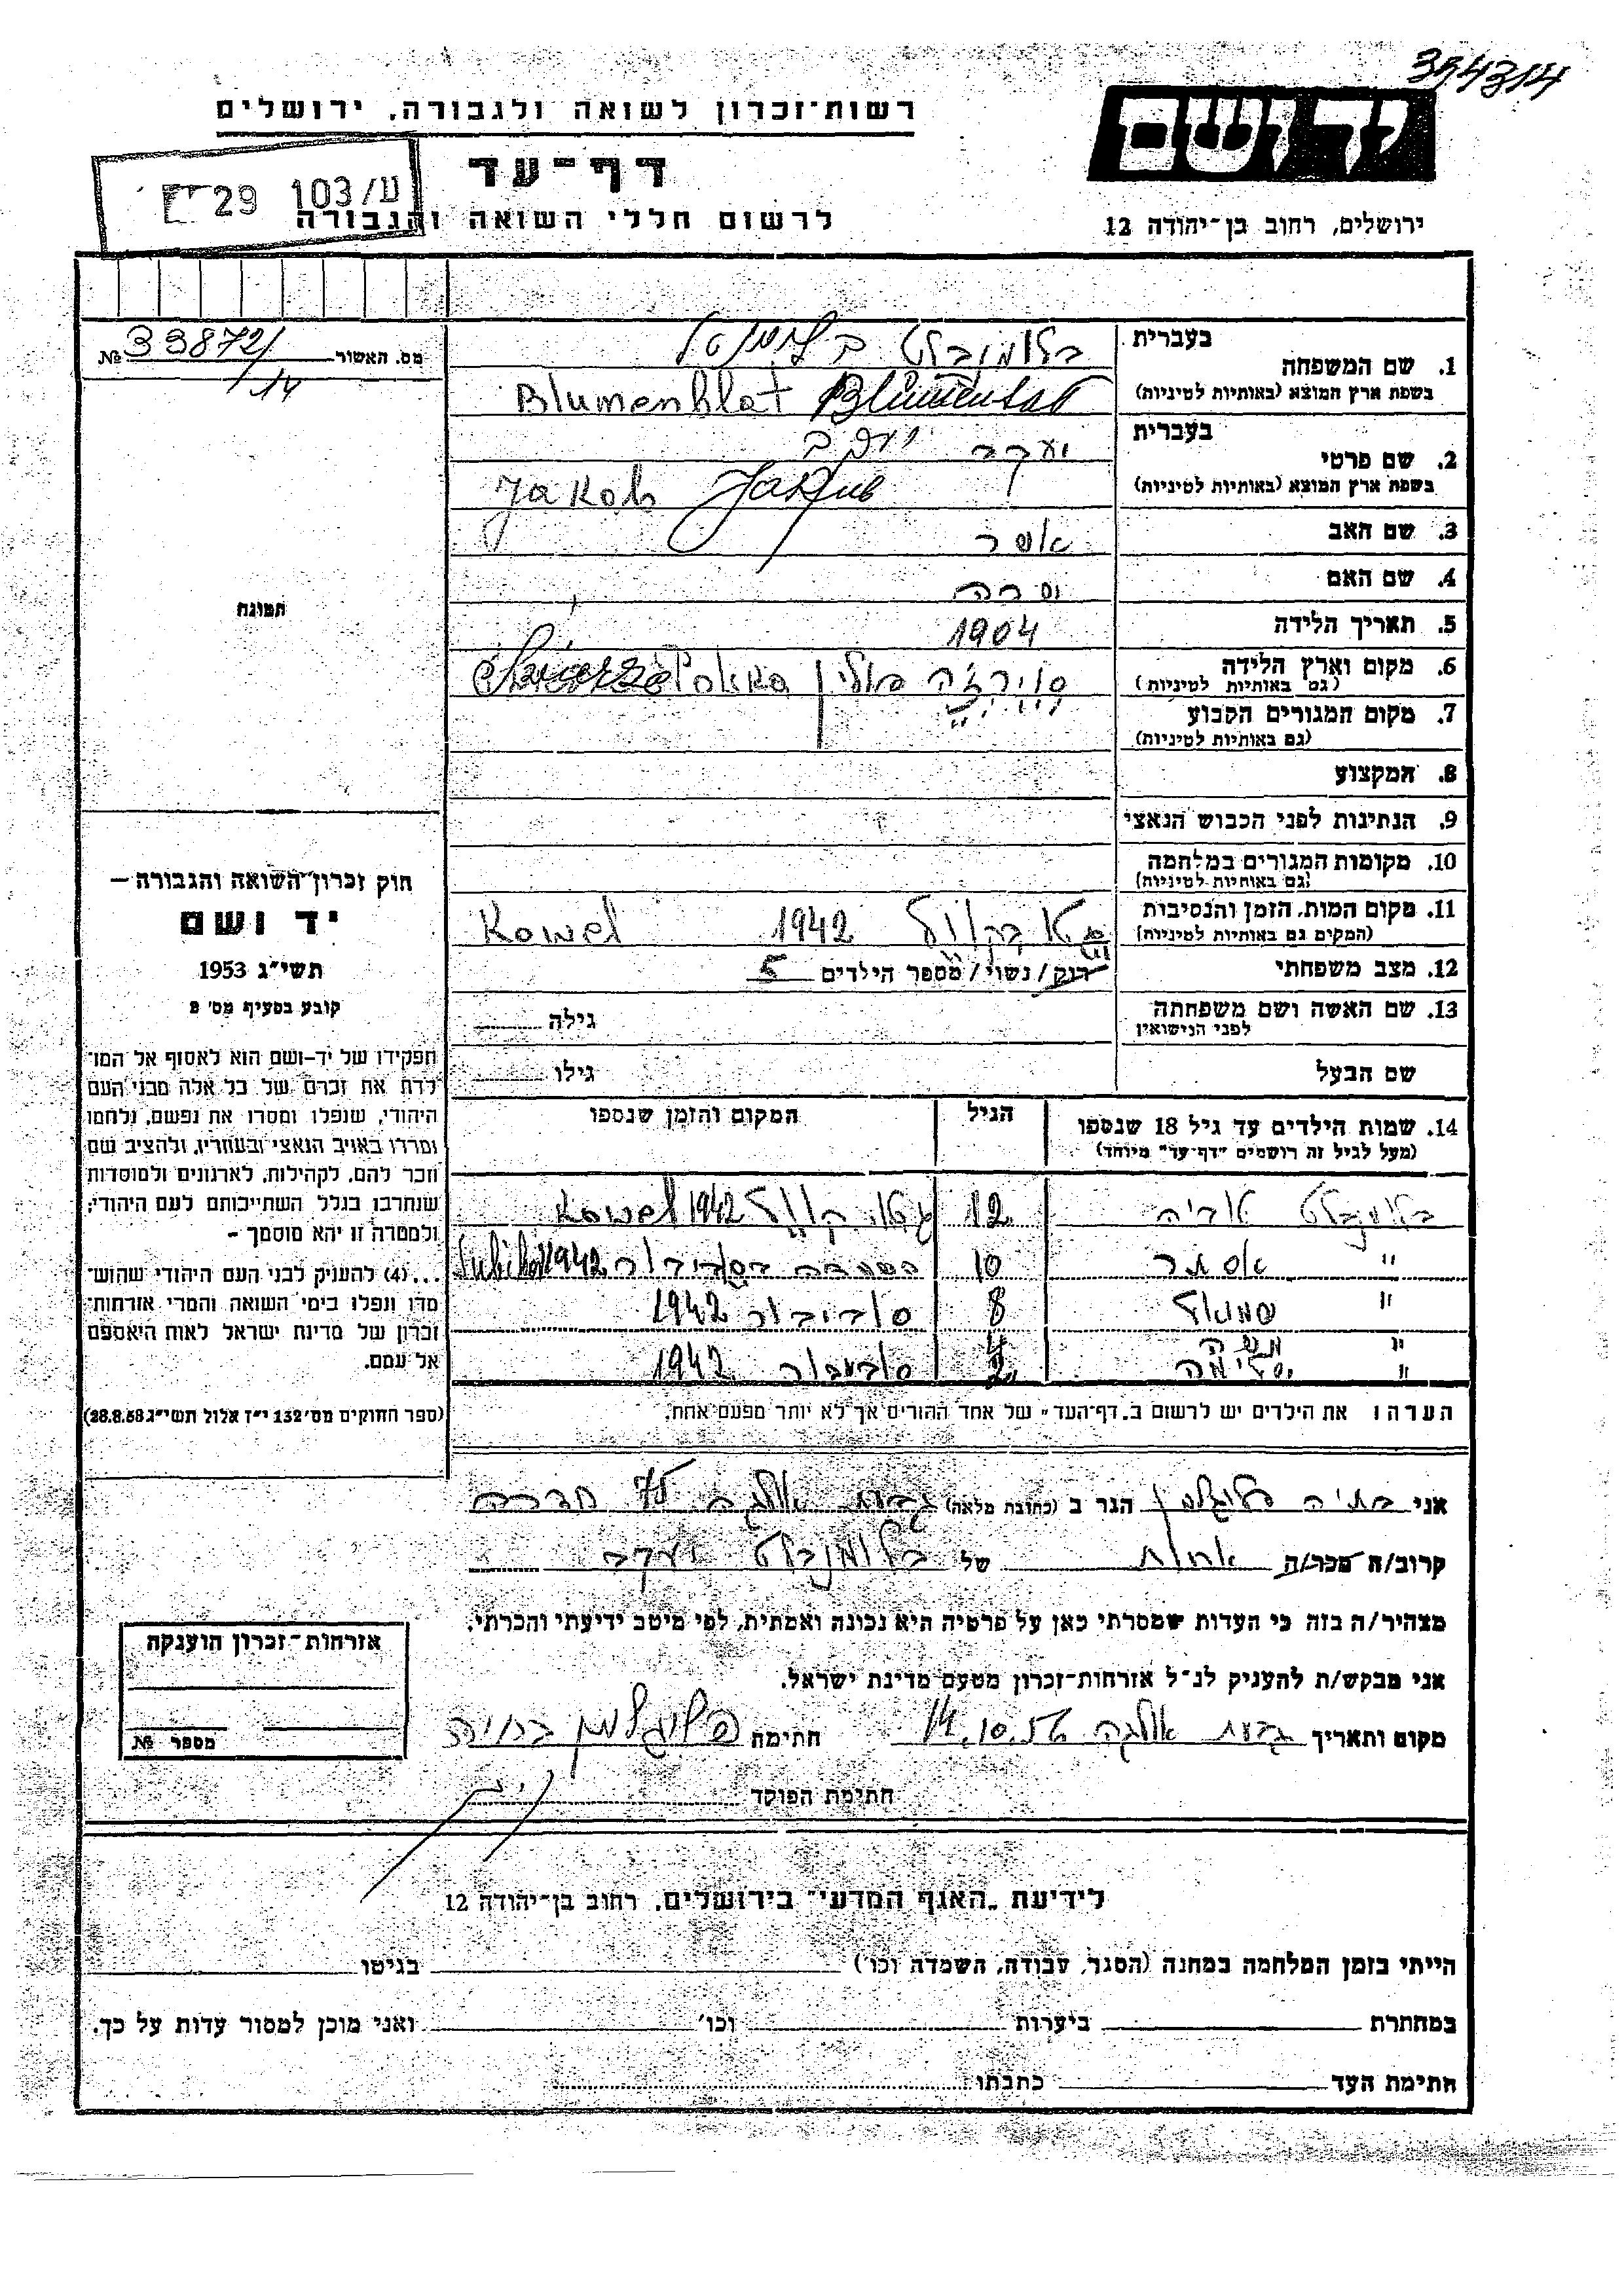 354314
רשות־זכרון לשואה ולגבורה, ירושלים
יד ושם
דף־עד
ע/103 29
לרשום חללי השואה והגבורה
ירושלים, רחוב בן־יהודה 12
מס. האשור 33872/ №
14
בעברית
1. שם המשפחה בלומנבלט
בשפת ארץ המוצא (באותיות לטיניות) Blumenblat
בעברית
2. שם פרטי יעקב
בשפת ארץ המוצא (באותיות לטיניות) Jakob
3. שם האב אשר
4. שם האם שרה
תמונה
5. תאריך הלידה 1904
6. מקום וארץ הלידה פולין
(גם באותיות לטיניות)
7. מקום המגורים הקבוע
(גם באותיות לטיניות)
8. המקצוע
9. הנתינות לפני הכבוש הנאצי
10. מקומות המגורים במלחמה
(גם באותיות לטיניות)
11. מקום המות, הזמן והנסיבות 1942 Kowel
(המקום גם באותיות לטיניות)
12. מצב משפחתי רוק/נשוי/מספר הילדים 5
13. שם האשה ושם משפחתה גילה
לפני הנישואין
שם הבעל גילו
14. שמות הילדים עד גיל 18 שנספו הגיל המקום והזמן שנספו
(מעל לגיל זה רושמים "דף־עד" מיוחד)
בלומנבלט אריה 12 גטו קוול 1942 Kowel
" אסתר 10 1942
" שמואל 8 סוביבור 1942
" משה 4
" 2 סוביבור 1942
הערה: את הילדים יש לרשום ב„דף־העד" של אחד ההורים אך לא יותר מפעם אחת.
חוק זכרון השואה והגבורה —
יד ושם
תשי"ג 1953
קובע בסעיף מס׳ 2
תפקידו של יד־ושם הוא לאסוף אל המו־
לדת את זכרם של כל אלה מבני העם
היהודי, שנפלו ומסרו את נפשם, נלחמו
ומרדו באויב הנאצי ובעוזריו, ולהציב שם
וזכר להם, לקהילות, לארגונים ולמוסדות
שנחרבו בגלל השתייכותם לעם היהודי,
ולמטרה זו יהא מוסמך –
...(4) להעניק לבני העם היהודי שהוש־
מדו ונפלו בימי השואה והמרי אזרחות־
זכרון של מדינת ישראל לאות היאספם
אל עמם.
(ספר החוקים מס׳ 132 י"ז אלול תשי"ג 28.8.53)
אני בתיה פלוגלמן הגר ב (כתובת מלאה) גבעת אולגה 75 חדרה
קרוב/ה מכר/ה אחות של בלומנבלט יעקב
מצהיר/ה בזה כי העדות שמסרתי כאן על פרטיה היא נכונה ואמתית, לפי מיטב ידיעתי והכרתי.
אני מבקש/ת להעניק לנ"ל אזרחות־זכרון מטעם מדינת ישראל.
מקום ותאריך גבעת אולגה 14.10.56 חתימה פלוגלמן בתיה
חתימת הפוקד
אזרחות־זכרון הוענקה
מספר №
לידיעת „האגף המדעי" בירושלים, רחוב בן־יהודה 12
הייתי בזמן המלחמה במחנה (הסגר, עבודה, השמדה וכו׳) בגיטו
במחתרת ביערות וכו׳ ואני מוכן למסור עדות על כך.
חתימת העד כתבתו